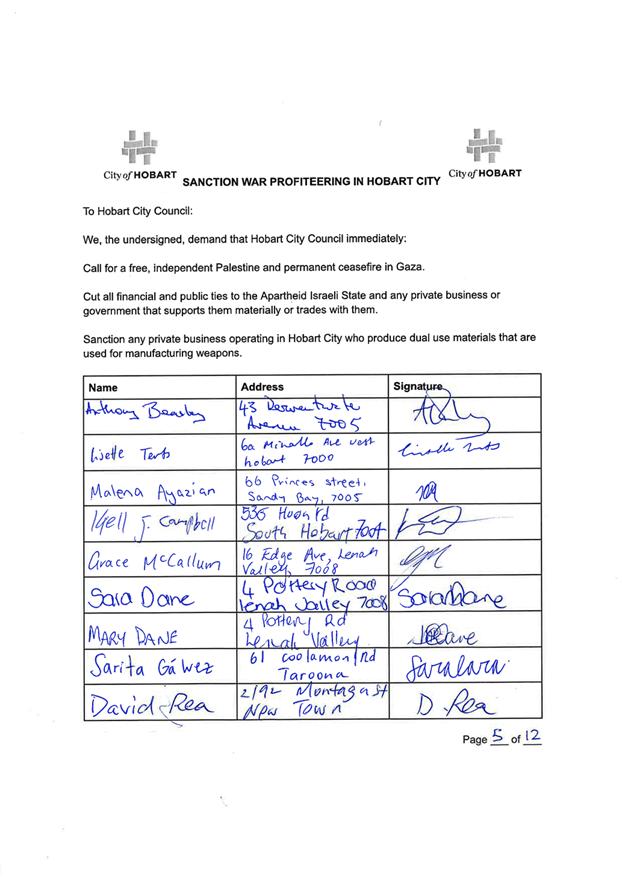 City of HOBART
City of HOBART
SANCTION WAR PROFITEERING IN HOBART CITY
To Hobart City Council:
We, the undersigned, demand that Hobart City Council immediately:
Call for a free, independent Palestine and permanent ceasefire in Gaza.
Cut all financial and public ties to the Apartheid Israeli State and any private business or
government that supports them materially or trades with them.
Sanction any private business operating in Hobart City who produce dual use materials that are
used for manufacturing weapons.
Name Address Signature
Anthony Beasley 43 Derwentwater
Avenue 7005
Lisette 6a Ave west
hobart 7000
Malena Ayazian 66 Princes street,
Sandy Bay, 7005
Kjell J. Campbell 536 Huon Rd
South Hobart 7004
Grace McCallum 16 Edge Ave, Lenah
Valley, 7008
Sara Dane 4 Pottery Road
lenah Valley 7008 Sara Dane
MARY DANE 4 Pottery Rd
Lenah Valley
Sarita Gálvez 61 coolamon Rd
Taroona
David Rea 2/92 Montagu st
New Town D. Rea
Page 5 of 12